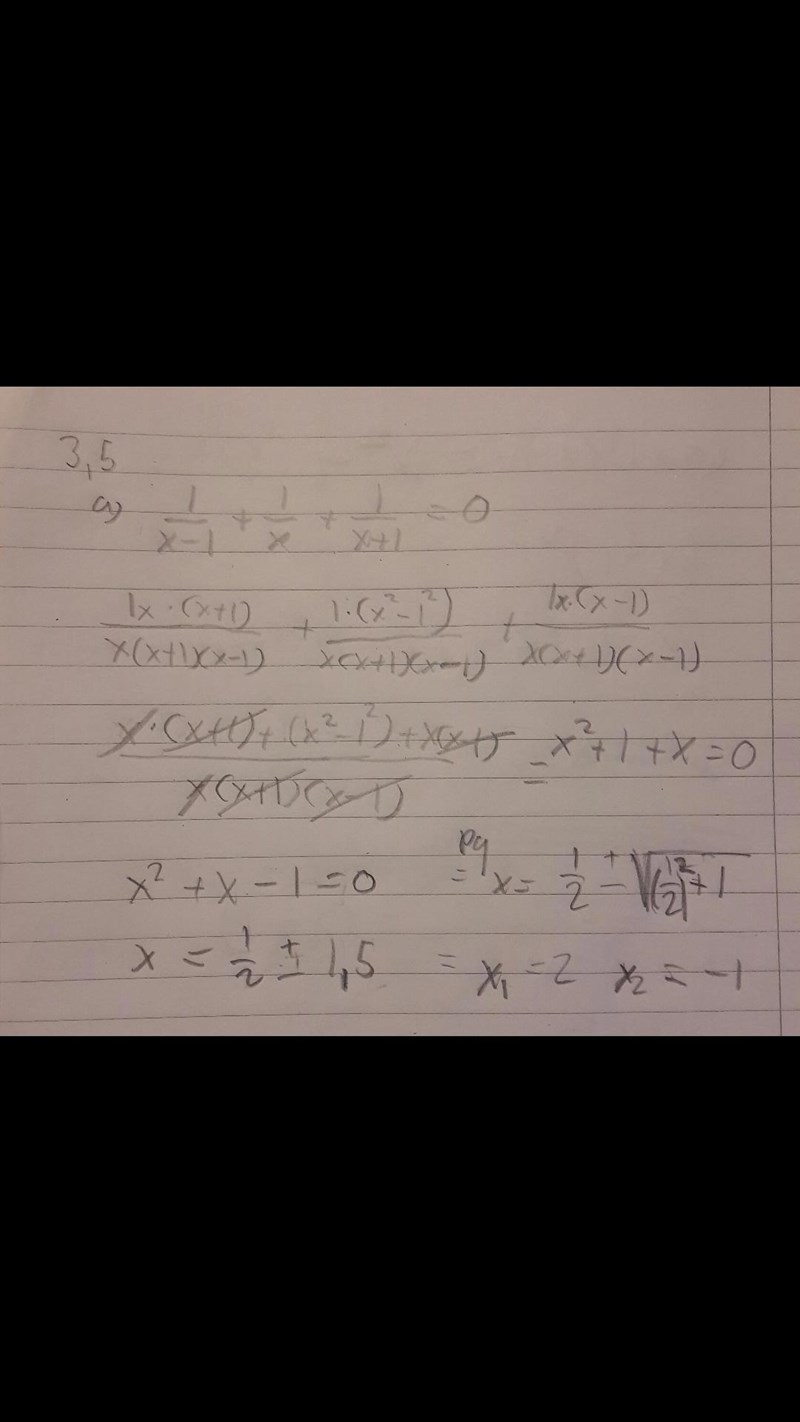 3,5
a) 1/(x-1) + 1/x + 1/(x+1) = 0
1x·(x+1)/x(x+1)(x-1) + 1·(x²-1²)/x(x+1)(x-1) + 1x·(x-1)/x(x+1)(x-1)
x·(x+1)+(x²-1²)+x(x-1)/x(x+1)(x-1) = x²+1+x=0
x²+x-1=0 pq = x= 1/2 ± √(1/2)²+1
x = 1/2 ± 1,5 = x₁ = 2 x₂ = -1